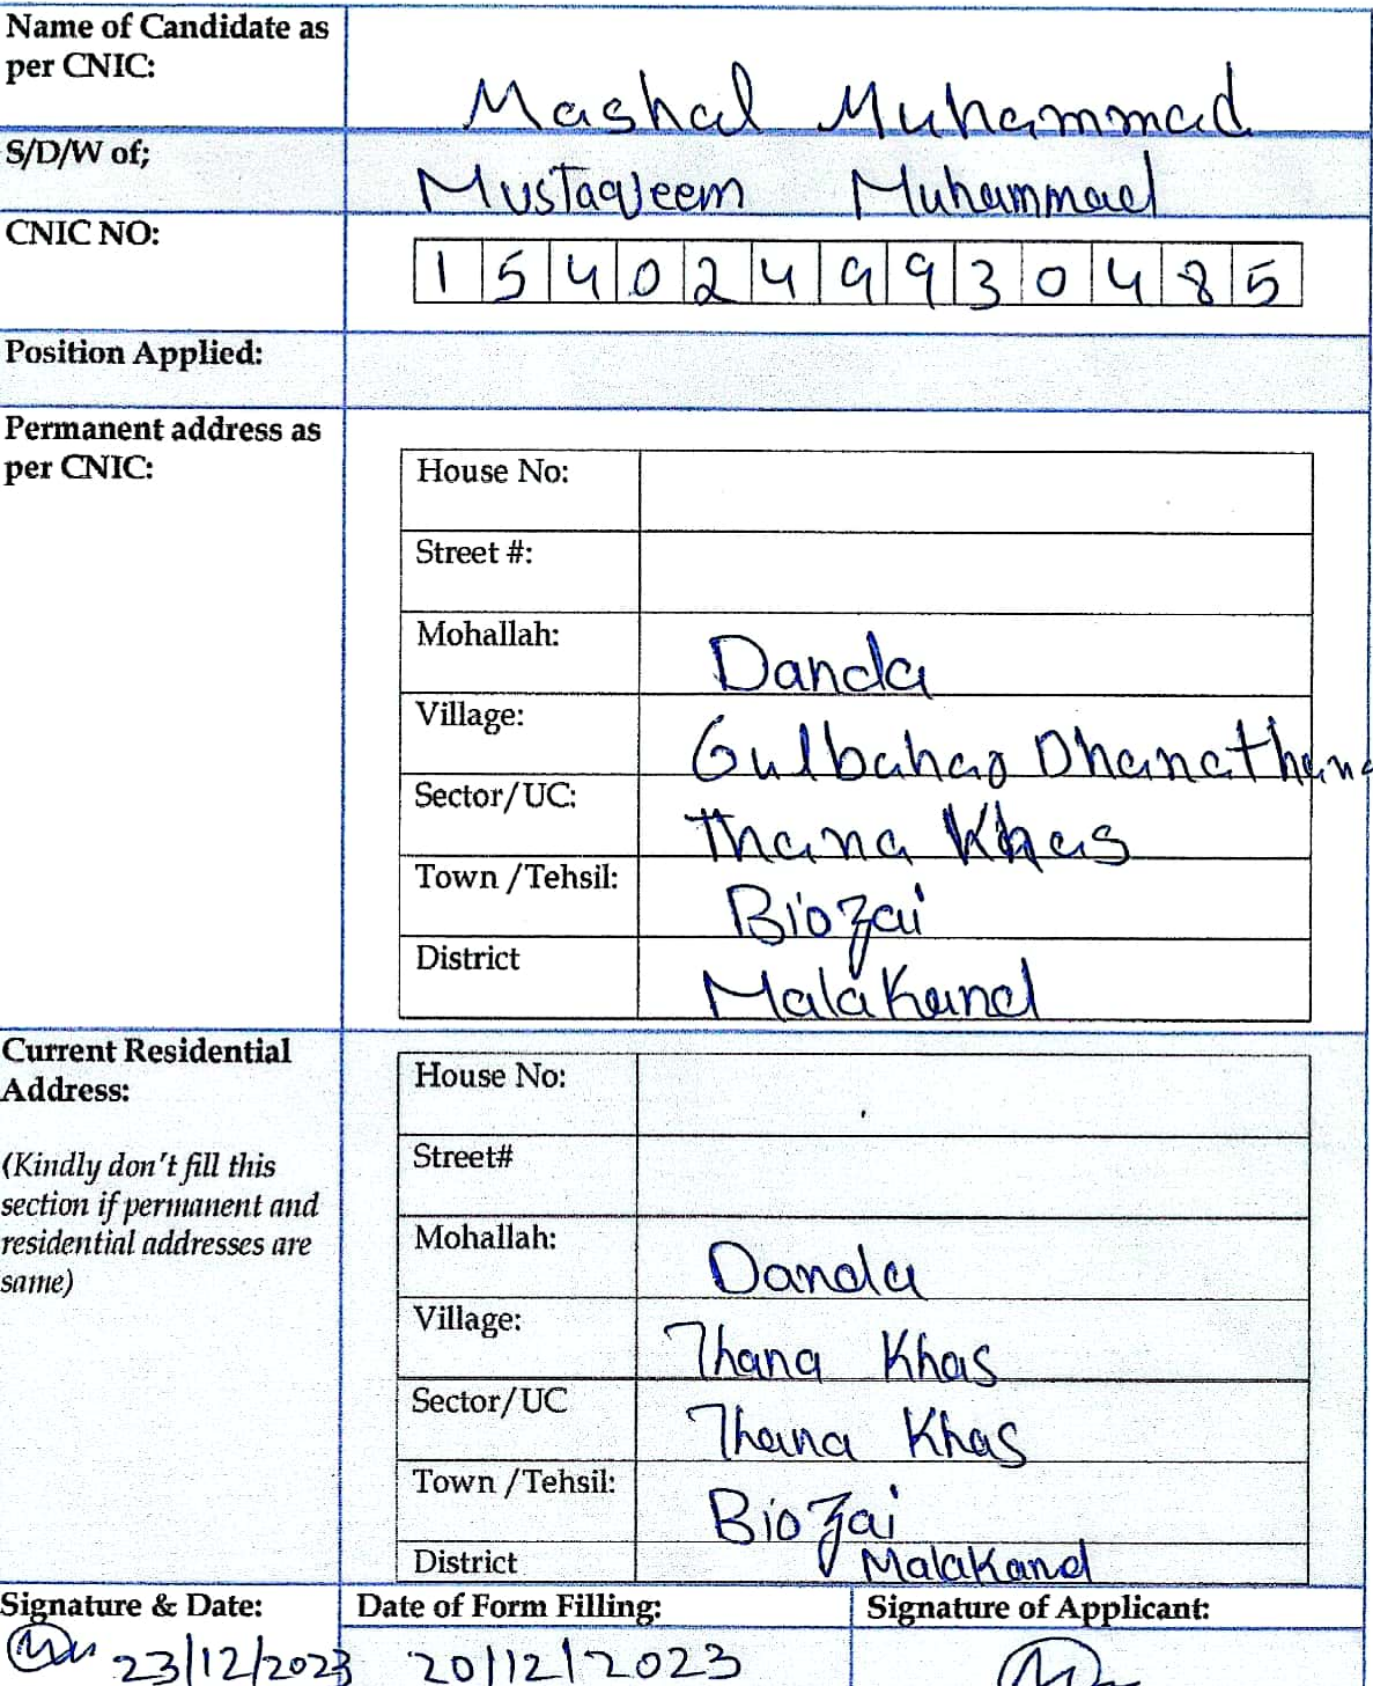 Name of Candidate as
per CNIC:
Mashal Muhammad
S/D/W of;
Mustaqeem Muhammad
CNIC NO:
1 5 4 0 2 4 9 9 3 0 4 8 5
Position Applied:
Permanent address as
per CNIC:
House No:
Street #:
Mohallah: Danda
Village: Gulbahar Dhanathana
Sector/UC: Thana Khas
Town /Tehsil: Biozai
District Malakand
Current Residential
Address:
(Kindly don't fill this
section if permanent and
residential addresses are
same)
House No:
Street#
Mohallah: Danda
Village: Thana Khas
Sector/UC Thana Khas
Town /Tehsil: Biozai
District Malakand
Signature & Date: Date of Form Filling: Signature of Applicant:
23/12/2023 20/12/2023